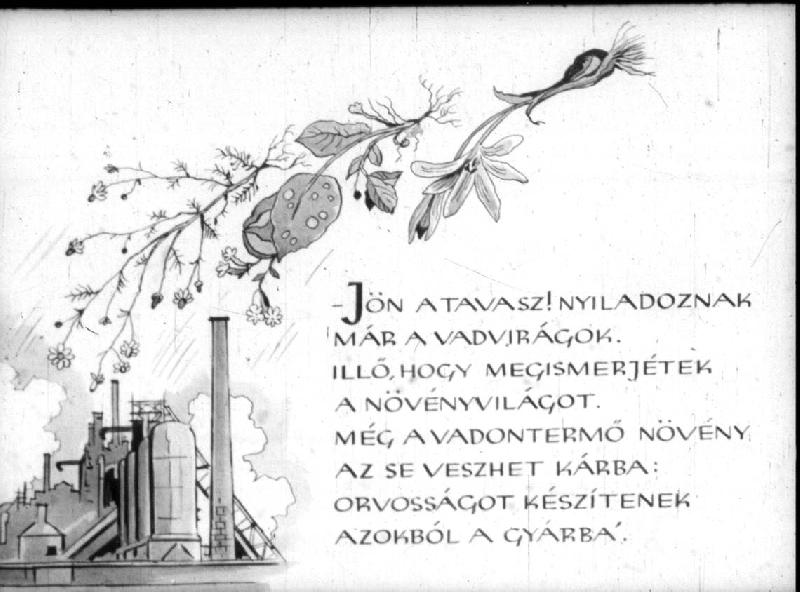 -JÖN A TAVASZ! NYILADOZNAK
MÁR A VADVIRÁGOK.
ILLŐ, HOGY MEGISMERJÉTEK
A NÖVÉNYVILÁGOT.
MÉG A VADONTERMŐ NÖVÉNY
AZ SE VESZHET KÁRBA:
ORVOSSÁGOT KÉSZÍTENEK
AZOKBÓL A GYÁRBA'.